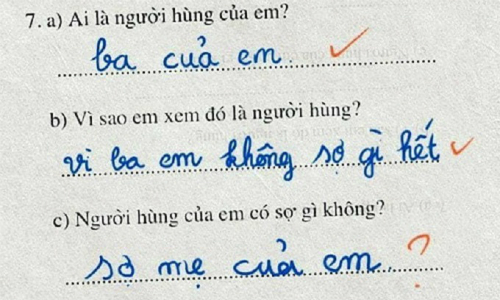 7. a) Ai là người hùng của em?
ba cuả em
b) Vì sao em xem đó là người hùng?
vì ba em không sợ gì hết
c) Người hùng của em có sợ gì không?
sợ mẹ cuả em ?